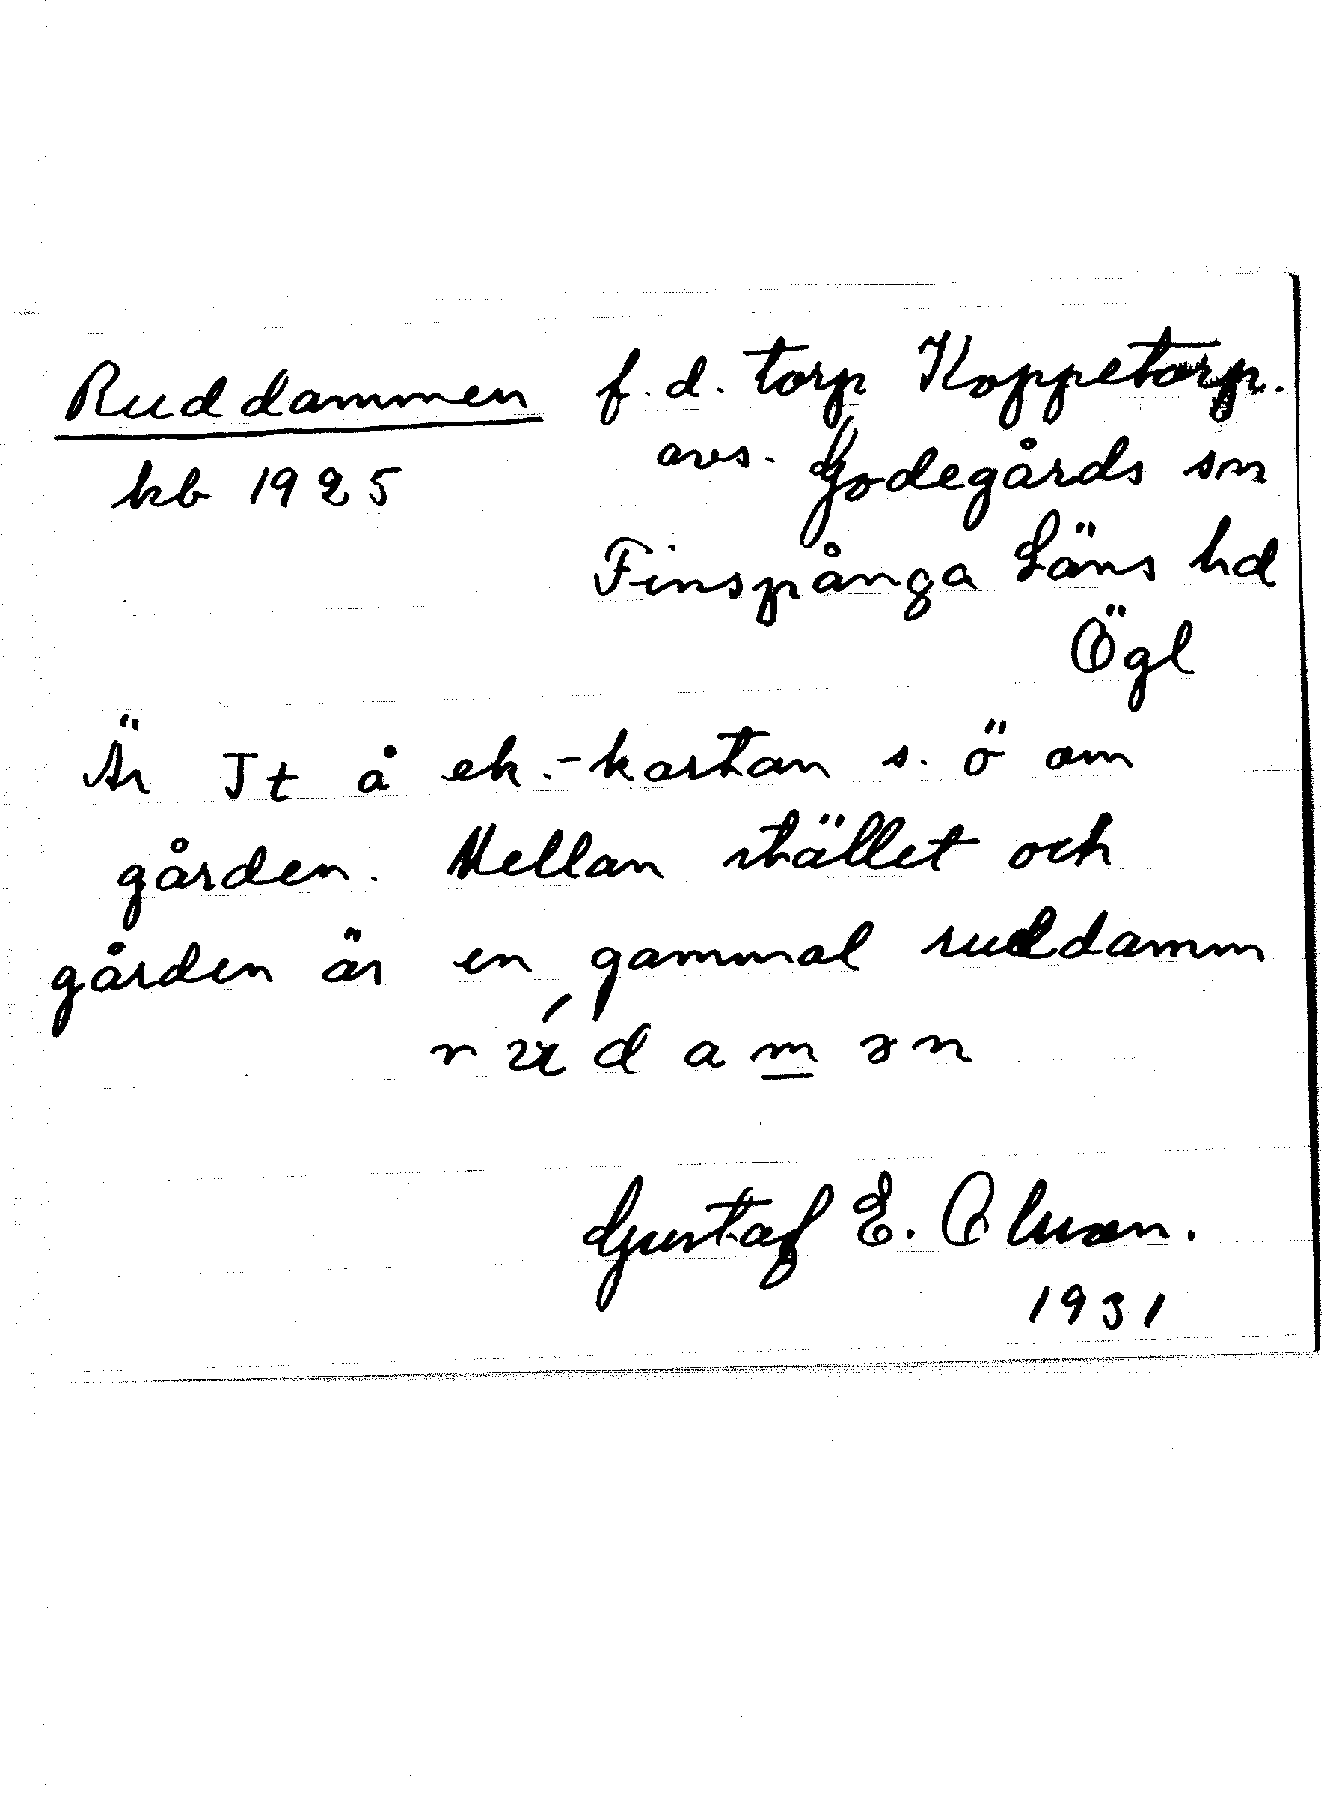 Ruddammen f. d. torp Koppetorp.
kb 1925 avs. Godegårds sn
Finspånga Läns hd
Ögl
Är Jt å ek.-kartan s. ö om
gården. Mellan stället och
gården är en gammal ruddamm
damən
Gustaf E. Olsson.
1931